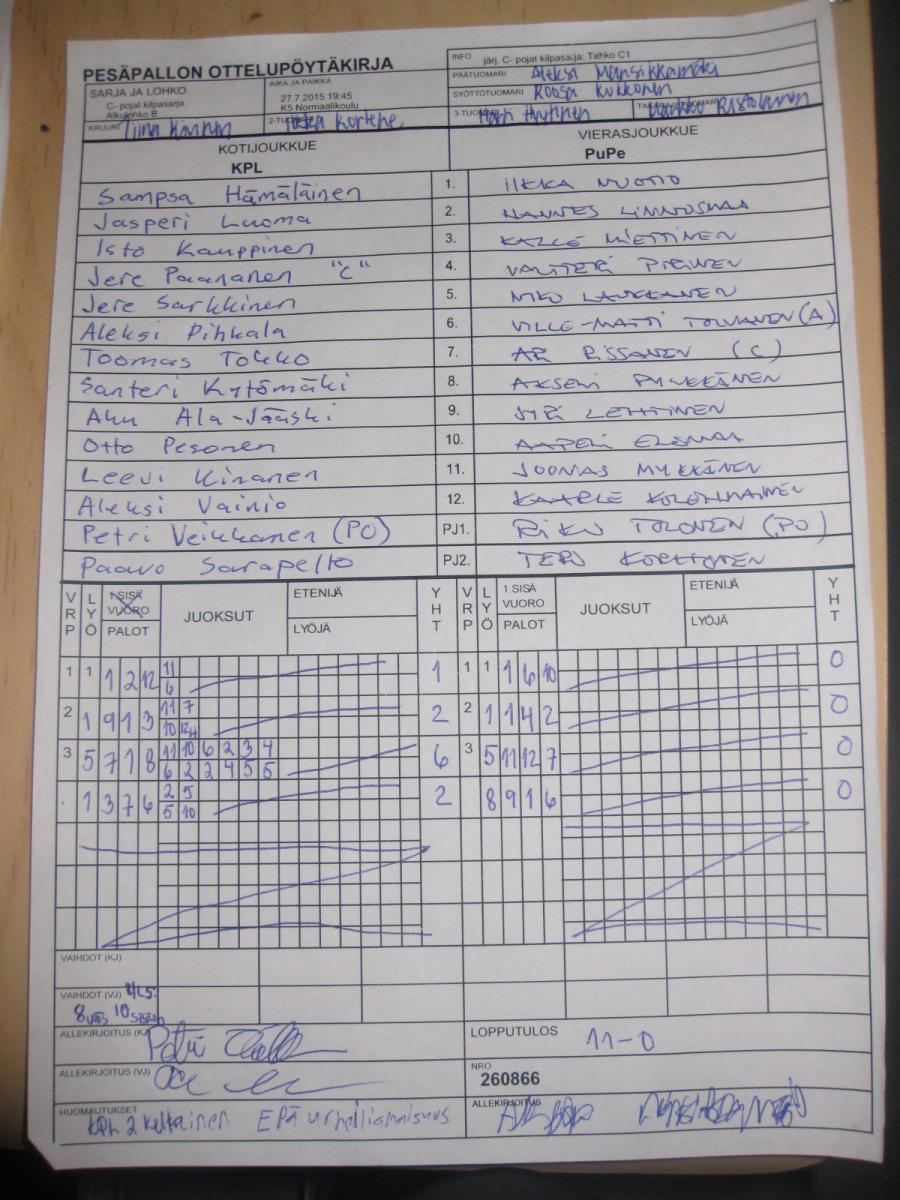 PESÄPALLON OTTELUPÖYTÄKIRJA
INFO järj. C- pojat kilpasarja: Tahko C1
PÄÄTUOMARI Aleksi Mansikkamäki
SARJA JA LOHKO
C- pojat kilpasarja
Alkulohko B
AIKA JA PAIKKA
27.7.2015 19:45
K5 Normaalikoulu
SYÖTTÖTUOMARI Roosa Kukkonen
KIRJURI Tiina Kinnunen
2-TUOMARI
3-TUOMARI
TAKARAJATUOMARI
KOTIJOUKKUE
KPL
VIERASJOUKKUE
PuPe
Sampsa Hämäläinen 1. IIKKA NUOTIO
Jasperi Luoma 2. HANNES LINNOSMAA
Isto Kauppinen 3. KALLE MIETTINEN
Jere Paananen "C" 4. VALTTERI PIRINEN
Jere Sarkkinen 5. NIKO LAUKKANEN
Aleksi Pihkala 6. VILLE-MATTI TOLVANEN (A)
Toomas Tokko 7. RISSANEN (C)
Santeri Kytömäki 8. AKSELI PYLKKÄNEN
Aku Ala-Jääski 9. JYRI LEHTINEN
Otto Pesonen 10. AAPELI ELOMAA
Leevi Kinanen 11. JOONAS MYKKÄNEN
Aleksi Vainio 12. KAARLE KOLEHMAINEN
Petri Veikkanen (PO) PJ1. RIKU TOLONEN (PO)
Paavo Sarapelto PJ2. TERO KORHONEN
VRP LYÖ 1.SISÄ VUORO PALOT JUOKSUT ETENIJÄ LYÖJÄ YHT VRP LYÖ 1.SISÄ VUORO PALOT JUOKSUT ETENIJÄ LYÖJÄ YHT
1 1 1 2 12 11 1 1 1 1 6 10 0
6
2 1 9 1 3 11 7 2 2 1 1 4 2 0
10
3 5 7 1 8 11 10 6 2 3 4 6 3 5 11 12 7 0
6 2 2 4 5 5
1 3 7 6 2 5 2 8 9 1 6 0
5 10
VAIHDOT (KJ)
VAIHDOT (VJ)
ALLEKIRJOITUS (KJ)
LOPPUTULOS 11-0
ALLEKIRJOITUS (VJ)
NRO
260866
HUOMAUTUKSET
KPL 2 keltainen Epäurheilliamaisuus
ALLEKIRJOITUS